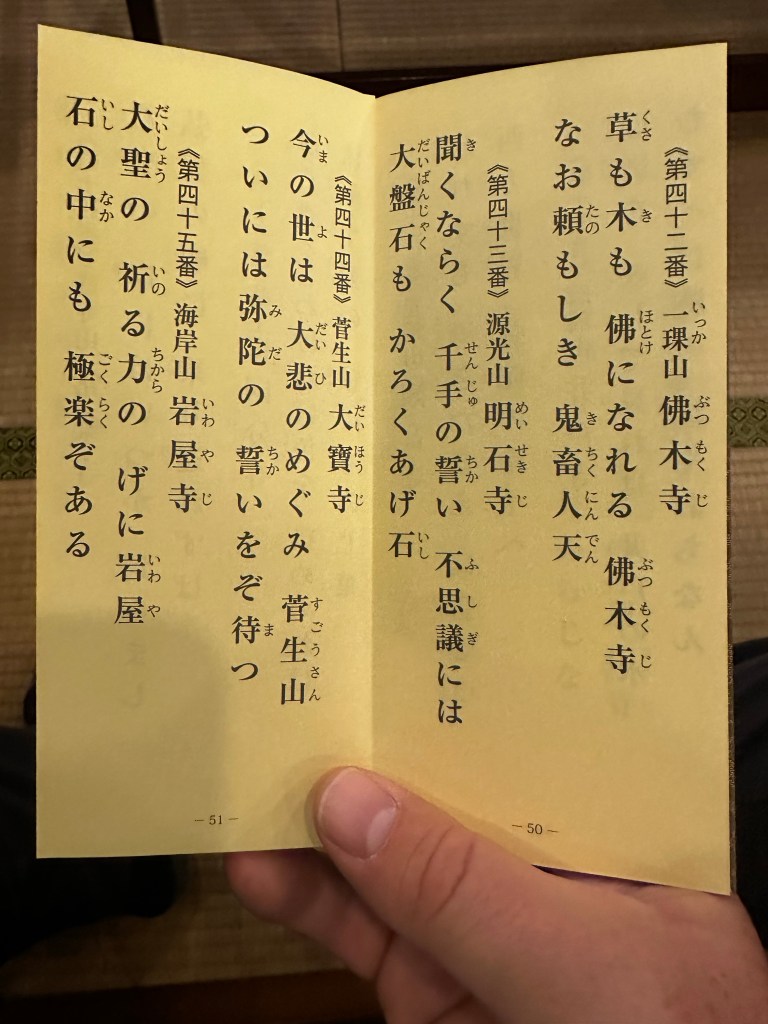 《第四十二番》 一𤩍山 佛木寺
草も木も 佛になれる 佛木寺
なお頼もしき 鬼畜人天
《第四十三番》 源光山 明石寺
聞くならく 千手の誓い 不思議には
大盤石も かろくあげ石
— 50 —
《第四十四番》 菅生山 大寶寺
今の世は 大悲のめぐみ 菅生山
ついには弥陀の 誓いをぞ待つ
《第四十五番》 海岸山 岩屋寺
大聖の 祈る力の げに岩屋
石の中にも 極楽ぞある
— 51 —